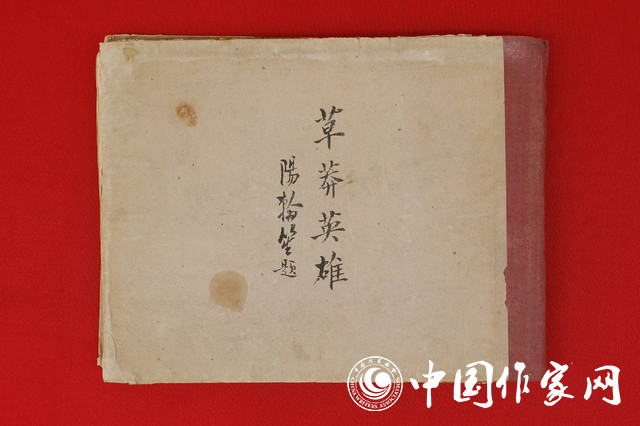 草莽英雄
陽翰笙題
中国作家网